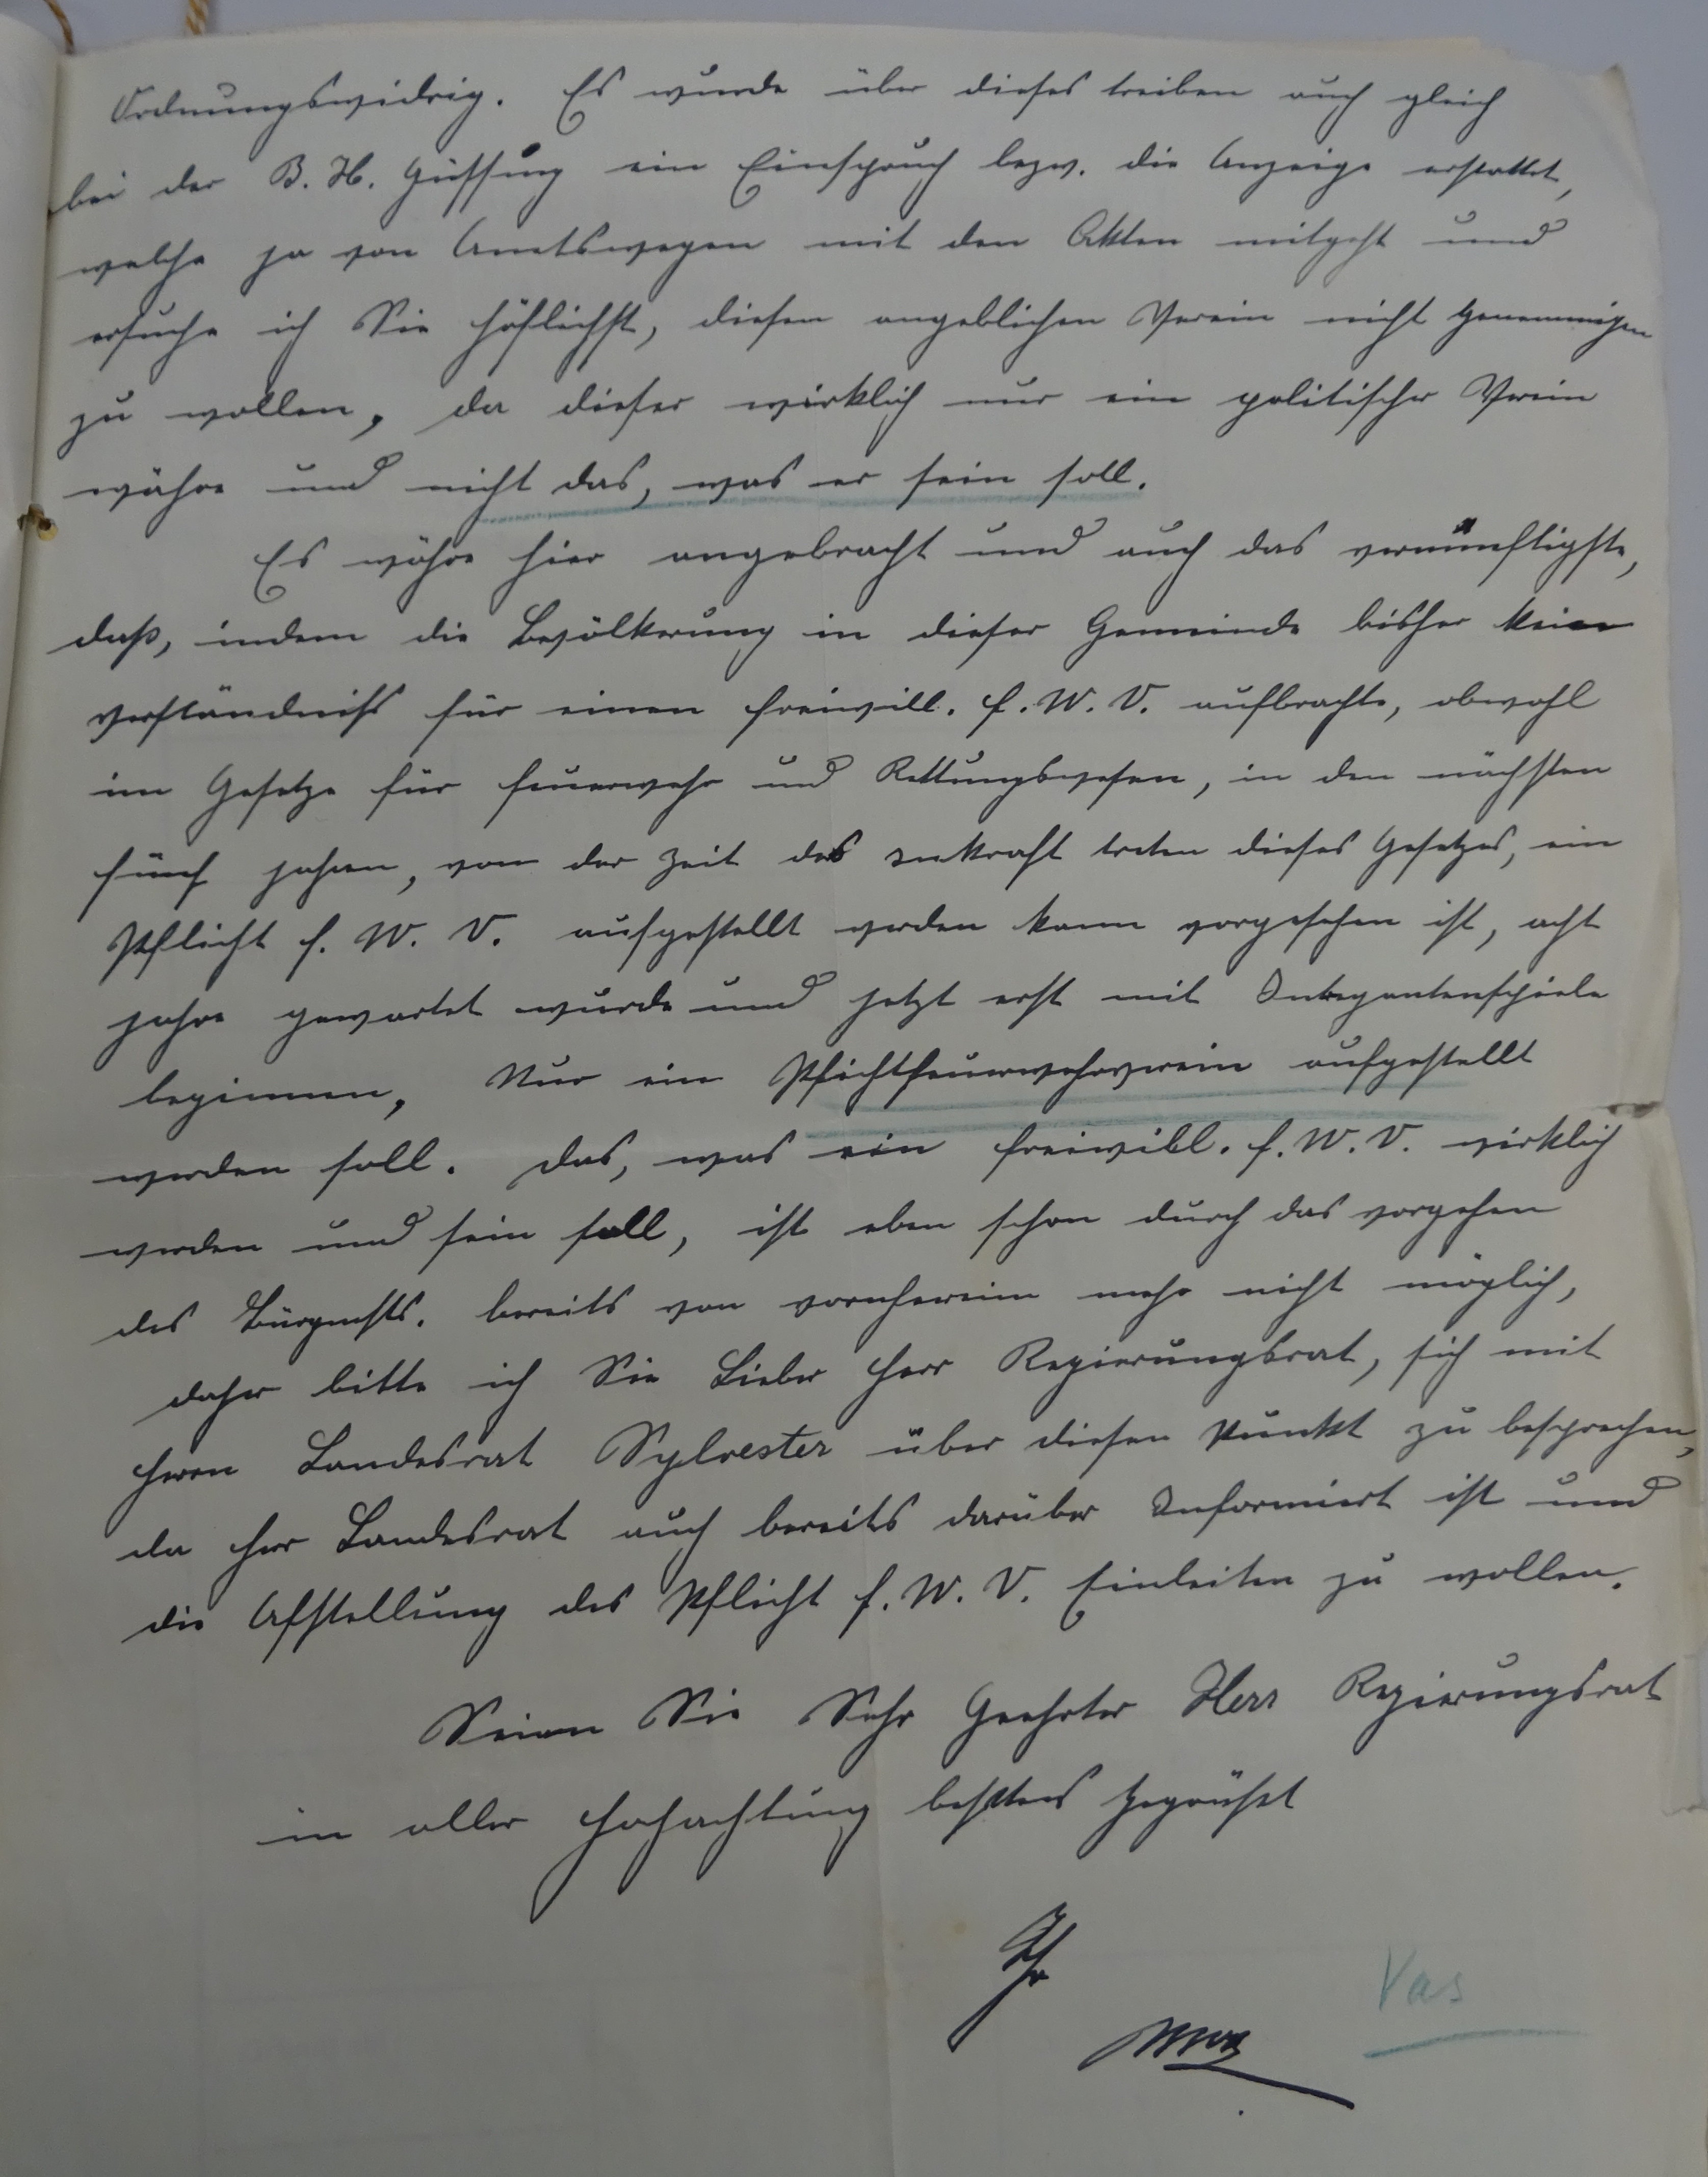 Ordnungswidrig. Es wurde über dieses treiben auch gleich
bei der B. H. Güssing ein Einspruch bezw. die Anzeige erstattet,
welche ja von Amtswegen mit den Akten mitgeht und
ersuche ich Sie höflichst, diesen angeblichen Verein nicht
zu wollen, da dieser wirklich nur ein politischer Verein
währe und nicht das, was er sein soll.
Es währe hier angebracht und auch das vernünftigste,
daß, indem die Bevölkerung in dieser Gemeinde bisher kein
verständniss für einen freiwill. F. W. V. aufbrachte, obwohl
im Gesetze für Feuerwehr und Rettungswesen, in den nächsten
fünf jahren, von der Zeit des inkraft treten dieses Gesetzes, ein
Pflicht F. W. V. aufgestellt werden kann vorgesehen ist, acht
jahre gewartet wurde und jetzt erst mit
beginnen, Nur ein Pflichtfeuerwehrverein aufgestellt
werden soll. Das, was ein freiwill. F. W. V. wirklich
werden und sein soll, ist eben schon durch das vorgehen
des Bürgmsts. bereits von vornherein mehr nicht möglich,
daher bitte ich Sie Lieber Herr Regierungsrat, sich mit
Herrn Landesrat Sylvester über diesen Punkt zu besprechen,
da Herr Landesrat auch bereits darüber Informiert ist und
die Afstellung des Pflicht F. W. V. Einleiten zu wollen.
Seien Sie Sehr Geehrter Herr Regierungsrat
in aller Hohachtung bestens gegrüßt
Ihr
Vas